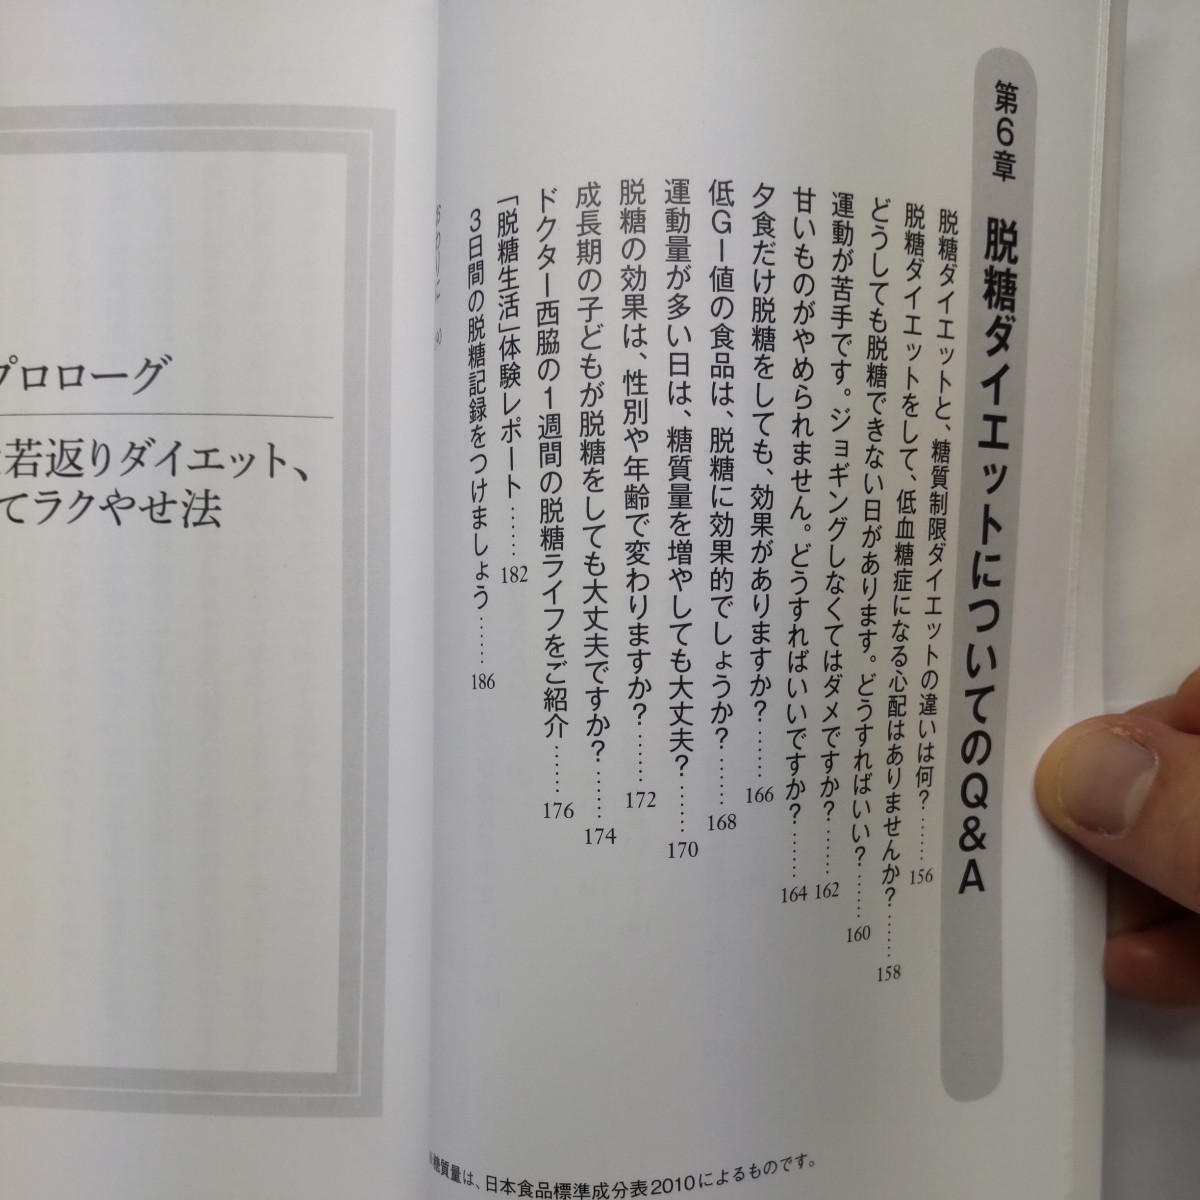 第6章 脱糖ダイエットについてのQ&A
脱糖ダイエットと、糖質制限ダイエットの違いは何？……156
脱糖ダイエットをして、低血糖症になる心配はありませんか？……158
どうしても脱糖できない日があります。どうすればいい？……160
運動が苦手です。ジョギングしなくてはダメですか？……162
甘いものがやめられません。どうすればいいですか？……164
夕食だけ脱糖をしても、効果がありますか？……166
低GI値の食品は、脱糖に効果的でしょうか？……168
運動量が多い日は、糖質量を増やしても大丈夫？……170
脱糖の効果は、性別や年齢で変わりますか？……172
成長期の子どもが脱糖をしても大丈夫ですか？……174
ドクター西脇の1週間の脱糖ライフをご紹介……176
「脱糖生活」体験レポート……182
3日間の脱糖記録をつけましょう……186
おわりに
糖質量は、日本食品標準成分表2010によるものです。
プロローグ
若返りダイエット、
てラクやせ法